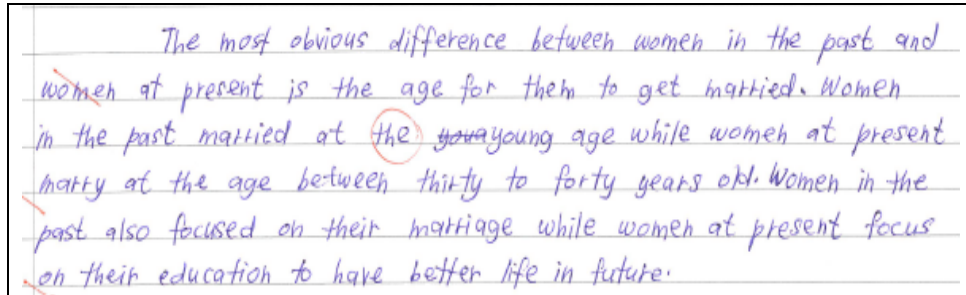 The most obvious difference between women in the past and
women at present is the age for them to get married. Women
in the past married at the young age while women at present
marry at the age between thirty to forty years old. Women in the
past also focused on their marriage while women at present focus
on their education to have better life in future.